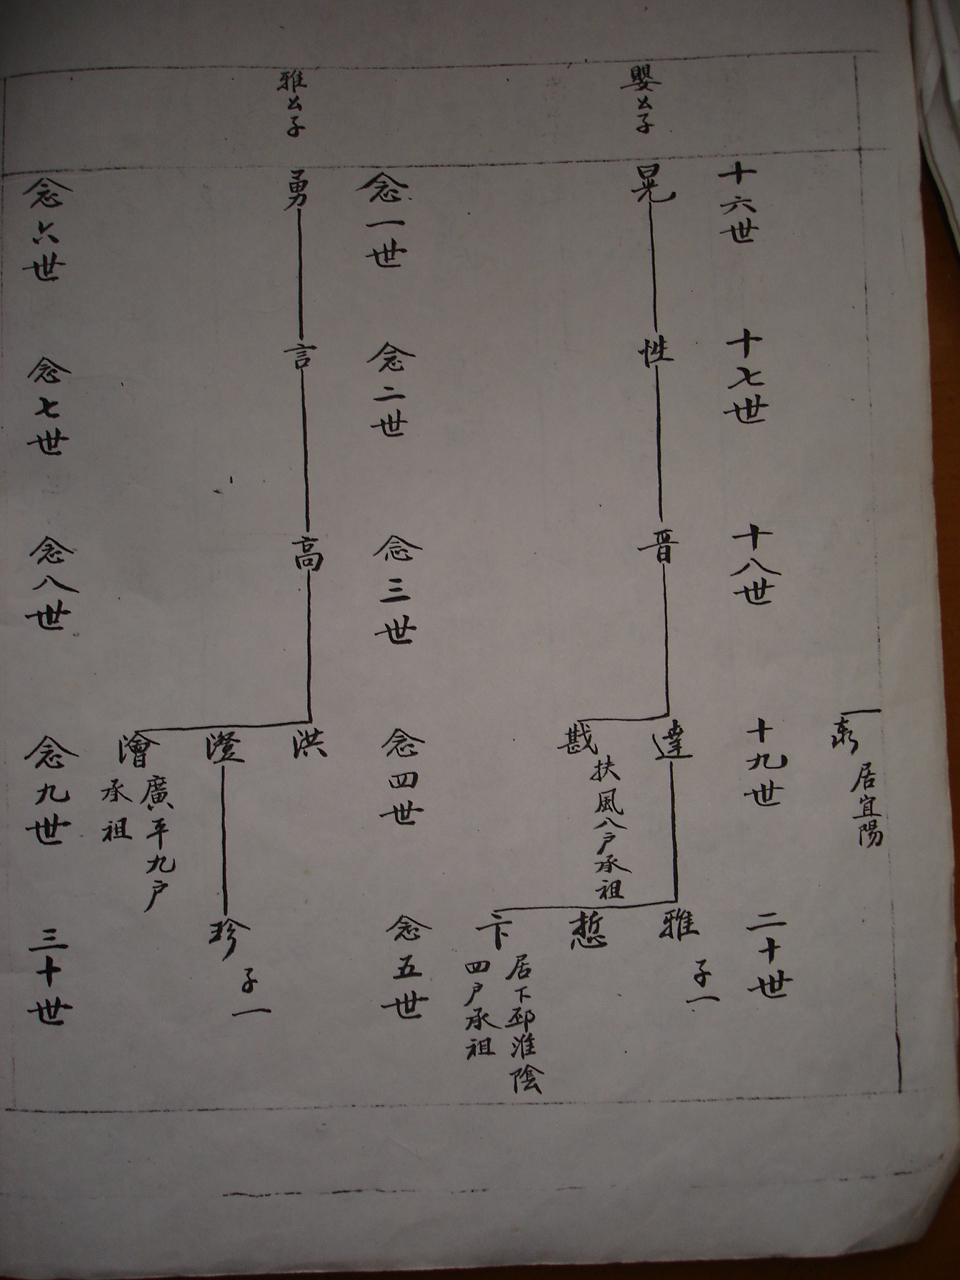 居宜陽
十六世
十七世
十八世
十九世
二十世
嬰公子
晃
性
晋
達
戡
扶風八户承祖
雅
子一
悊
卞
居下邳淮陰
四户承祖
念一世
念二世
念三世
念四世
念五世
雅公子
勇
言
高
洪
澄
澮
廣平九户
承祖
珍
子一
念六世
念七世
念八世
念九世
三十世